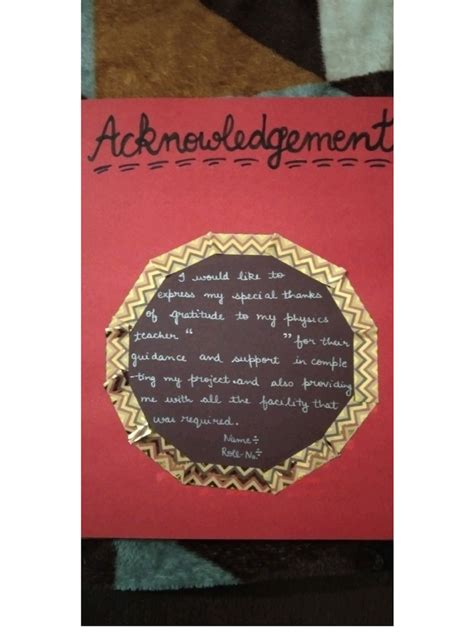 Acknowledgement
I would like to
express my special thanks
of gratitude to my physics
teacher "          " for their
guidance and support in comple
-ting my project and also providing
me with all the facility that
was required.
Name÷
Roll-No.÷